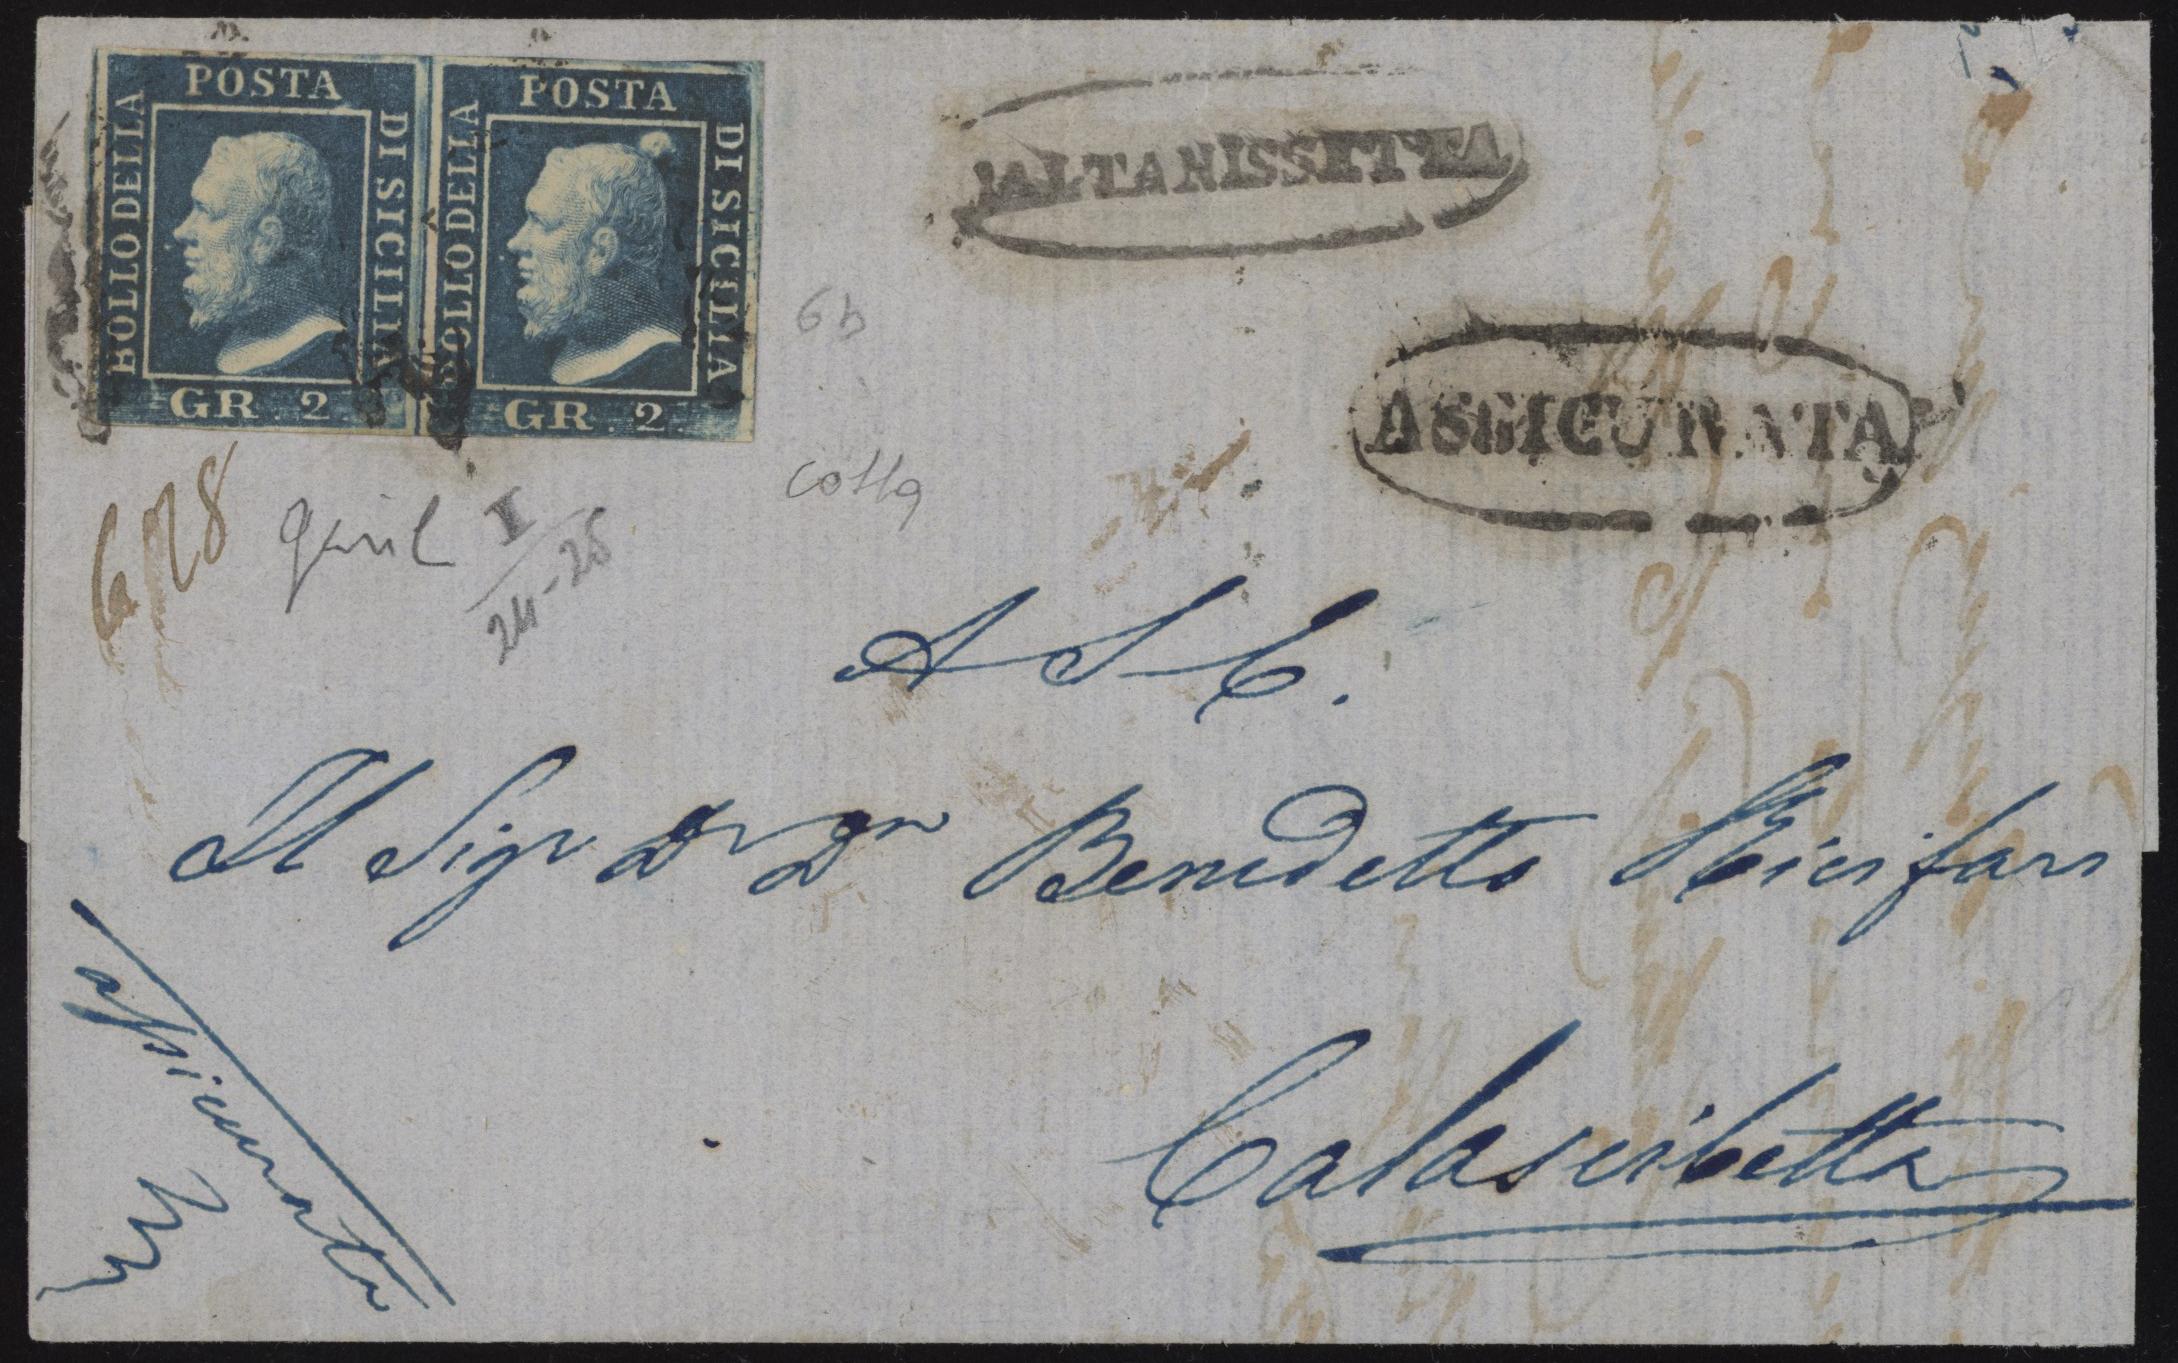 POSTA
BOLLO DELLA
DI SICILIA
GR. 2.
POSTA
BOLLO DELLA
DI SICILIA
GR. 2.
CALTANISSETTA
ASSICURATA
6b
colla
628
I
24-25
A S C.
Il Sigr Dr Dn Benedetto
Calascibetta
assicurata